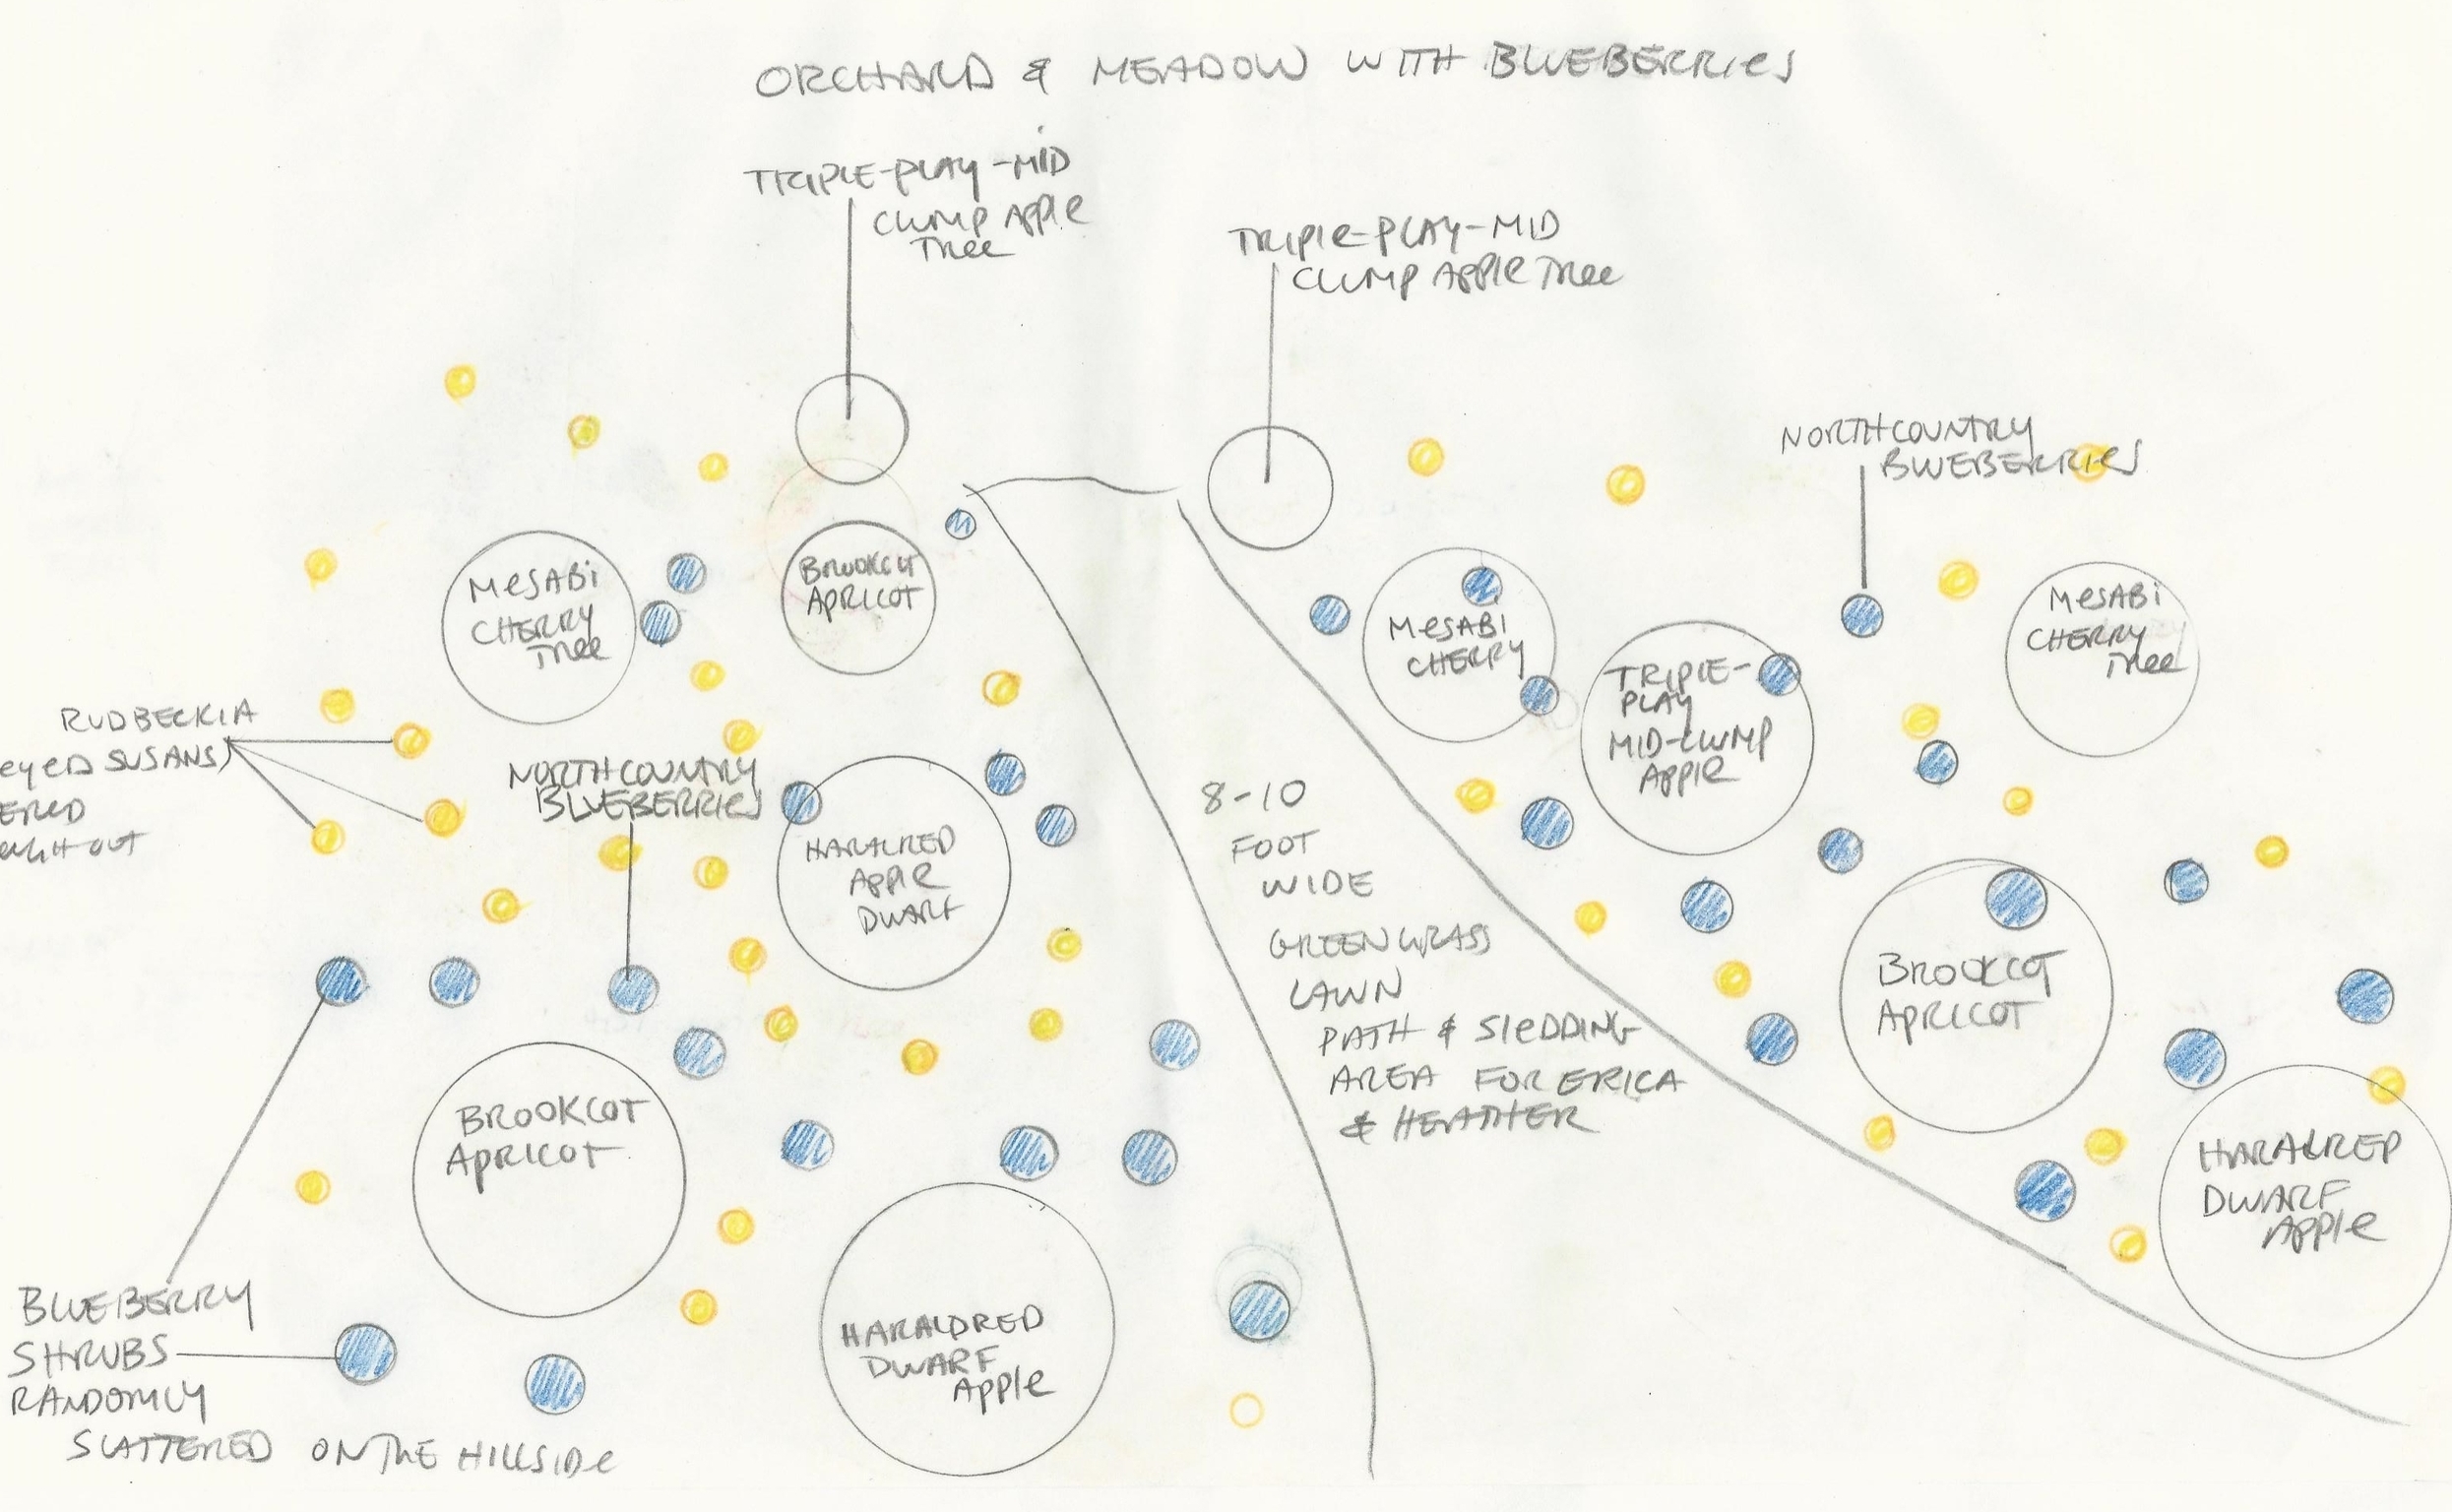 ORCHARD & MEADOW WITH BLUEBERRIES
TRIPLE-PLAY-MID
CLUMP APPLE
TREE
TRIPLE-PLAY-MID
CLUMP APPLE TREE
NORTHCOUNTRY
BLUEBERRIES
MESABI
CHERRY
TREE
BROOKCOT
APRICOT
MESABI
CHERRY
TRIPLE-
PLAY
MID-CLUMP
APPLE
MESABI
CHERRY
TREE
RUDBECKIA
EYED SUSANS)
ERED
OUGHOUT
NORTHCOUNTRY
BLUEBERRIES
HARALRED
APPLE
DWARF
8-10
FOOT
WIDE
GREEN GRASS
LAWN
PATH & SLEDDING
AREA FOR ERICA
& HEATHER
BROOKCOT
APRICOT
BROOKCOT
APRICOT
HARALRED
DWARF
APPLE
HARALDRED
DWARF
APPLE
BLUEBERRY
SHRUBS
RANDOMLY
SCATTERED ON THE HILLSIDE